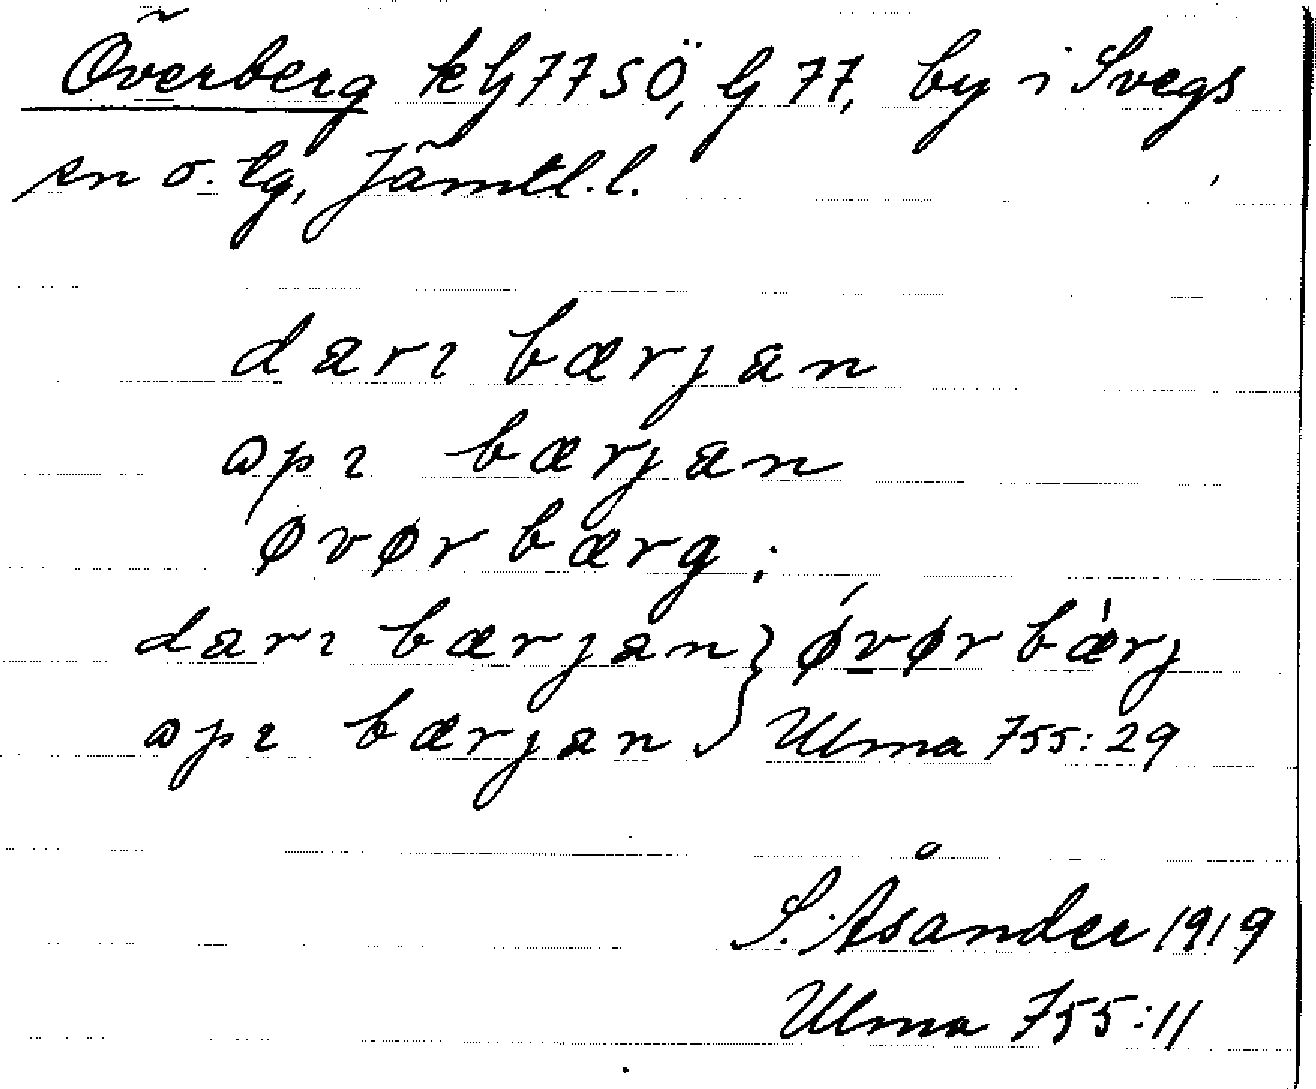 Överberg kbl 77 SÖ, bl 77, by i Svegs
sn o. tg, Jämtl.l.
darı bærjan
ɷpı bærjan
øvørbærg;
darı bærjan } ǿvørbǽrj
ɷpı bærjan } Ulma 755:29
S. Åsander 1919
Ulma 755:11